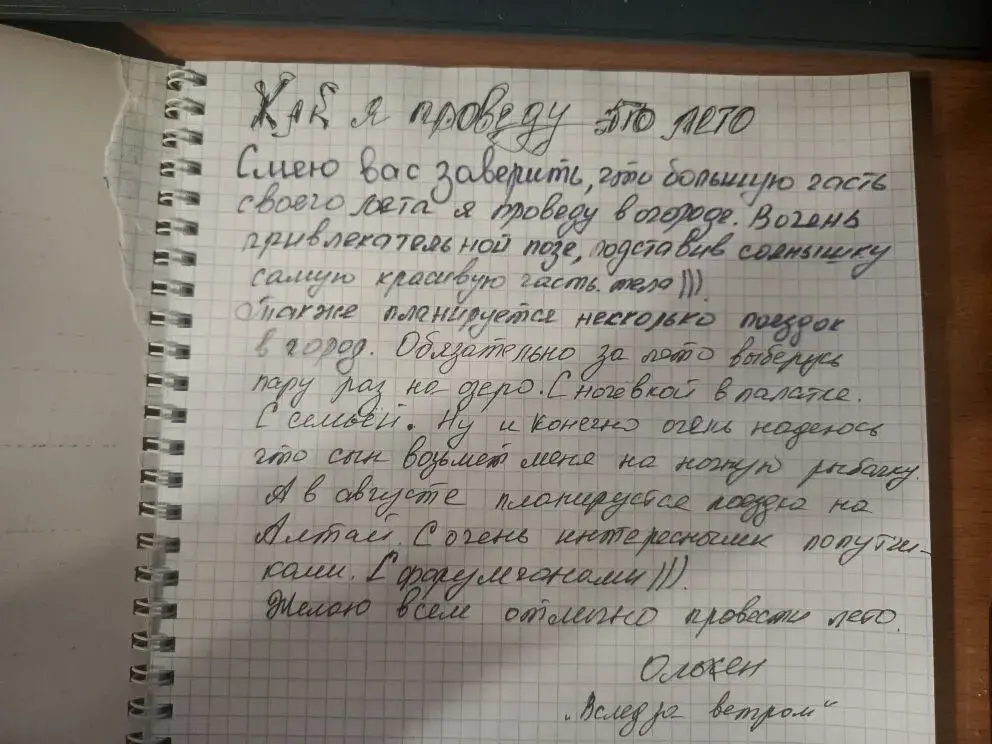 Как я проведу это лето
Смею вас заверить, что большую часть
своего лета я проведу в огороде. В очень
привлекательной позе, подставив солнышку
самую красивую часть тела))).
Также планируется несколько поездок
в город. Обязательно за лето выберусь
пару раз на озеро. С ночёвкой в палатке.
С семьёй. Ну и конечно очень надеюсь
что сын возьмёт меня на ночную рыбалку.
А в августе планируется поездка на
Алтай. С очень интересными попутчи-
ками. С форумчанами))).
Желаю всем отлично провести лето.
Ольхен
"Вслед за ветром"